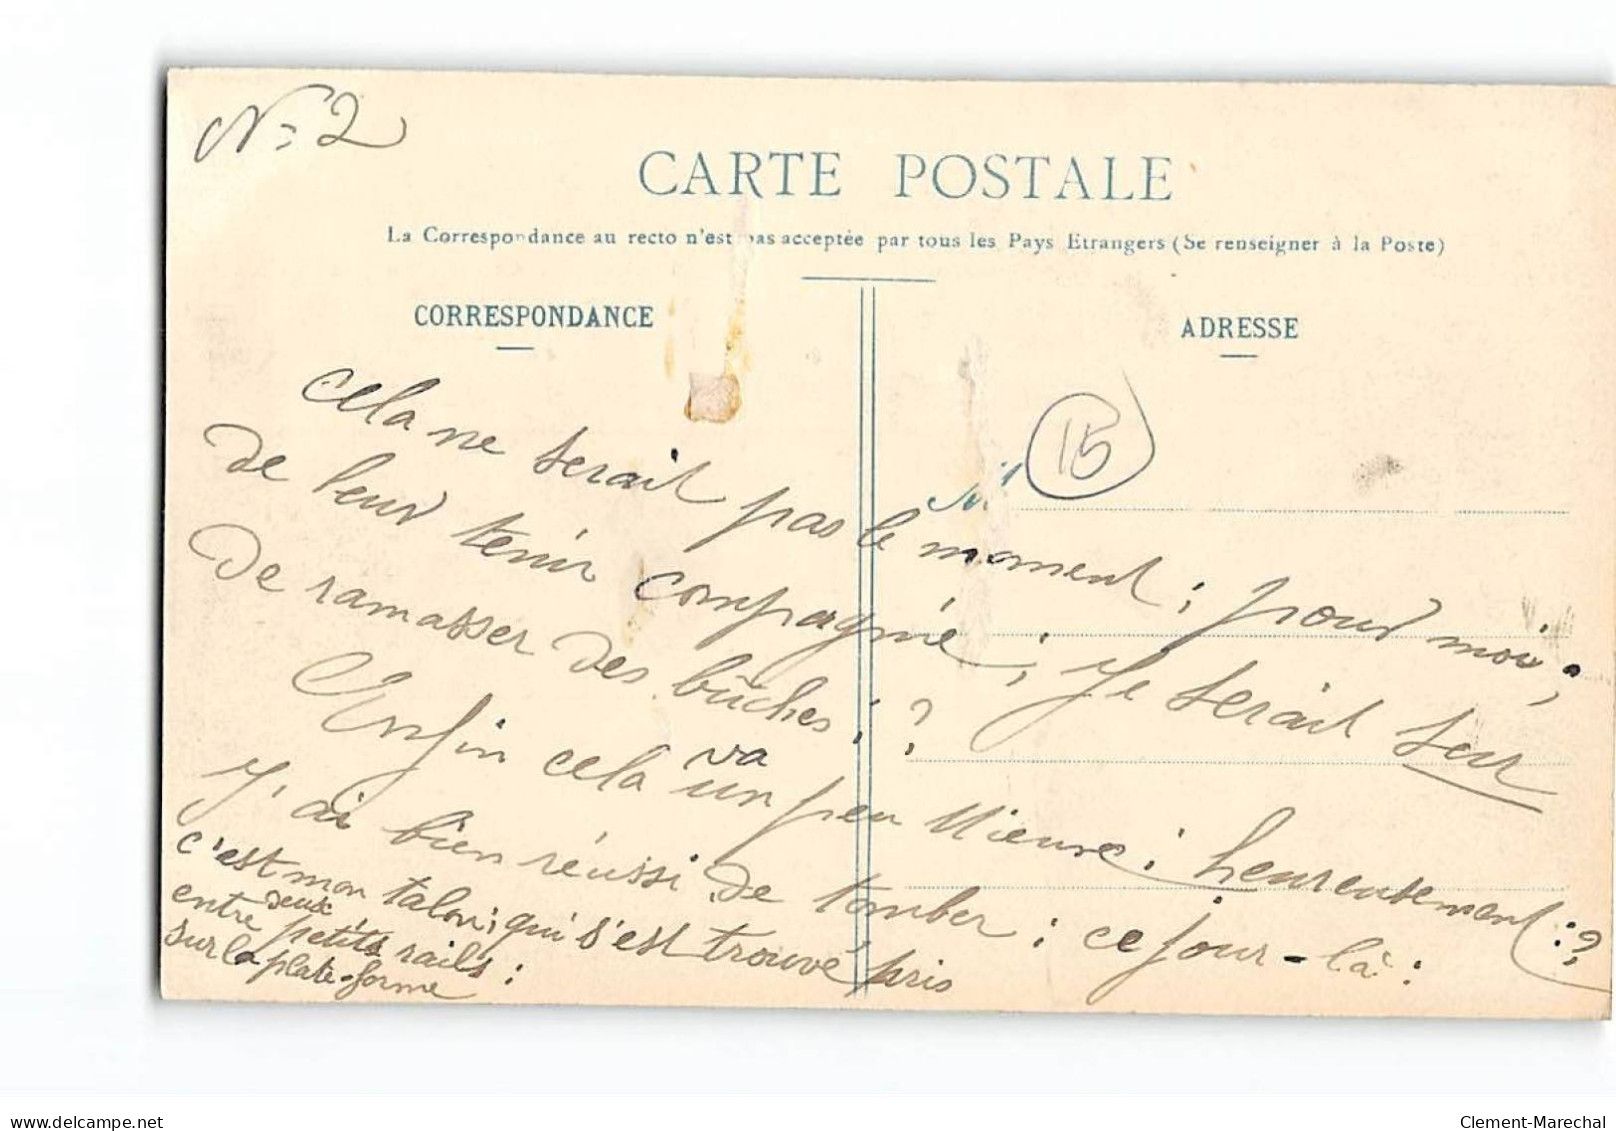 N=2
CARTE POSTALE
La Correspondance au recto n'est pas acceptée par tous les Pays Etrangers (Se renseigner à la Poste)
CORRESPONDANCE
ADRESSE
15
M
cela ne serait pas le moment ; pour moi ;
de leur tenir compagnie ; je serait sur
De ramasser des bûches ; ?
Enfin cela va un peu Mieux : heureusement : ?
J'ai bien réussi de tomber : ce jour-là :
c'est mon talon ; qui s'est trouvé pris
entre deux petits rails :
sur la plate-forme
delcampe.net
Clement-Marechal